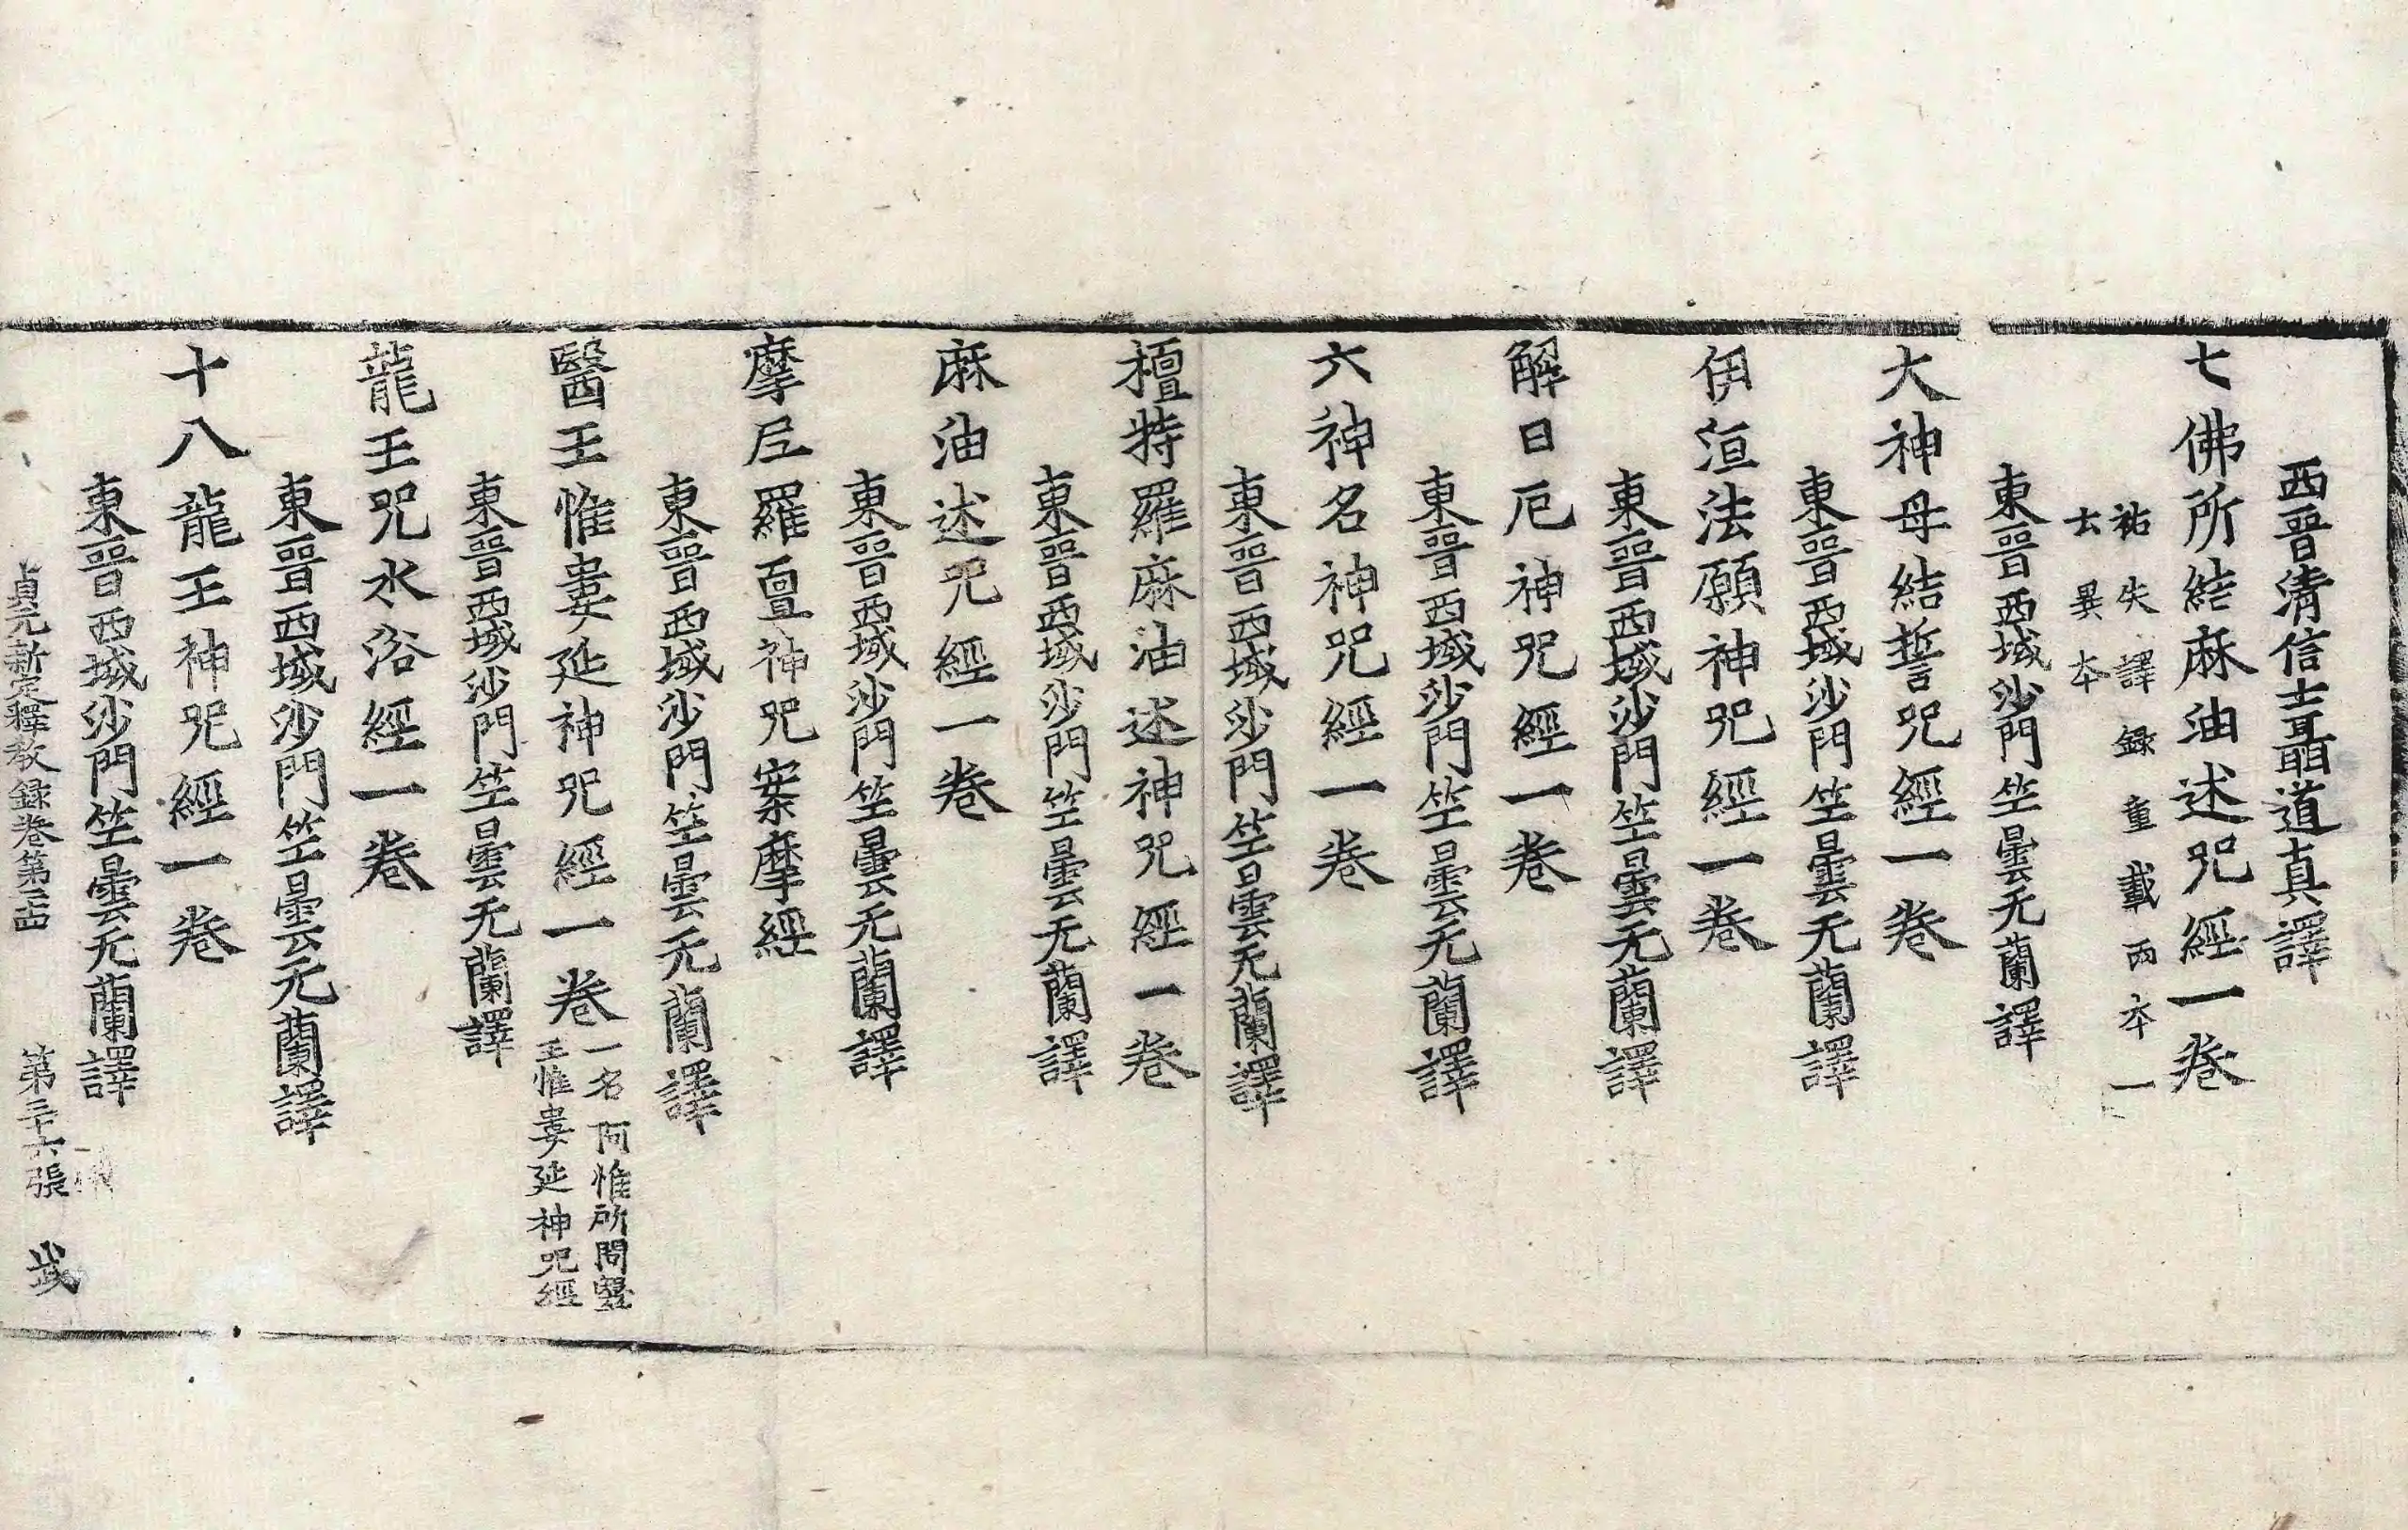 西晉清信士聶道真譯
七佛所結麻油述咒經一卷
祐失譯錄重載兩本一
云異本
東晉西域沙門竺曇无蘭譯
大神母結誓咒經一卷
東晉西域沙門竺曇无蘭譯
伊洹法願神咒經一卷
東晉西域沙門竺曇无蘭譯
解日厄神咒經一卷
東晉西域沙門竺曇无蘭譯
六神名神咒經一卷
東晉西域沙門竺曇无蘭譯
檀特羅麻油述神咒經一卷
東晉西域沙門竺曇无蘭譯
麻油述咒經一卷
東晉西域沙門竺曇无蘭譯
摩尼羅亶神咒案摩經
東晉西域沙門竺曇无蘭譯
醫王惟婁延神咒經一卷
一名阿惟所問醫
王惟婁延神咒經
東晉西域沙門竺曇无蘭譯
龍王咒水浴經一卷
東晉西域沙門竺曇无蘭譯
十八龍王神咒經一卷
東晉西域沙門竺曇无蘭譯
貞元新定釋教錄卷第 第二十六張